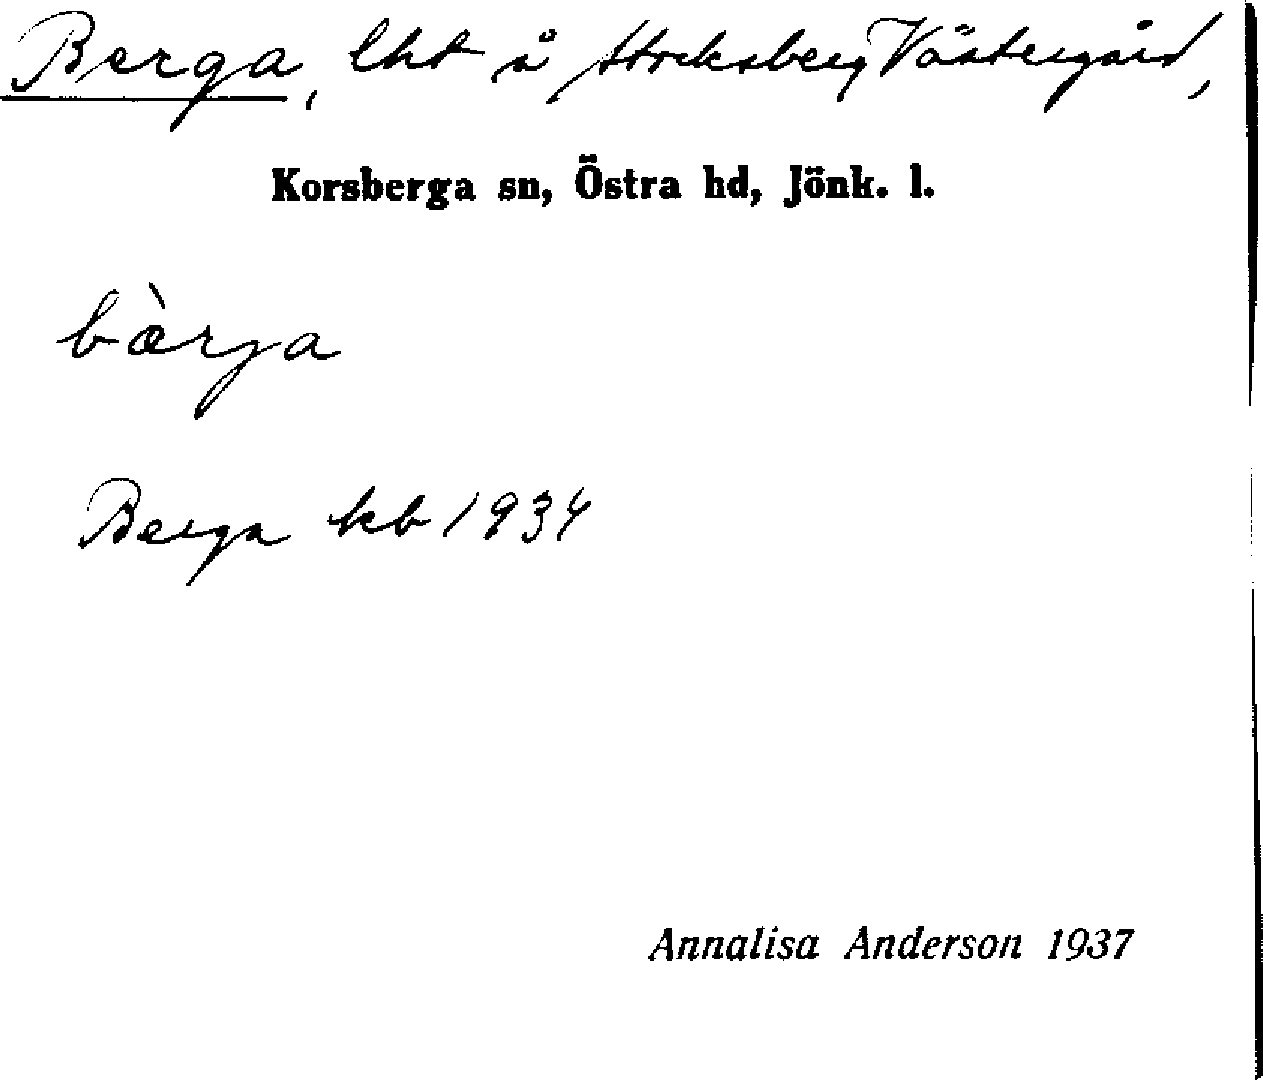 Berga, lht å Stocksberg Västergård,
Korsberga sn, Östra hd, Jönk. l.
bæ̀rja
Berga kb 1934
Annalisa Anderson 1937